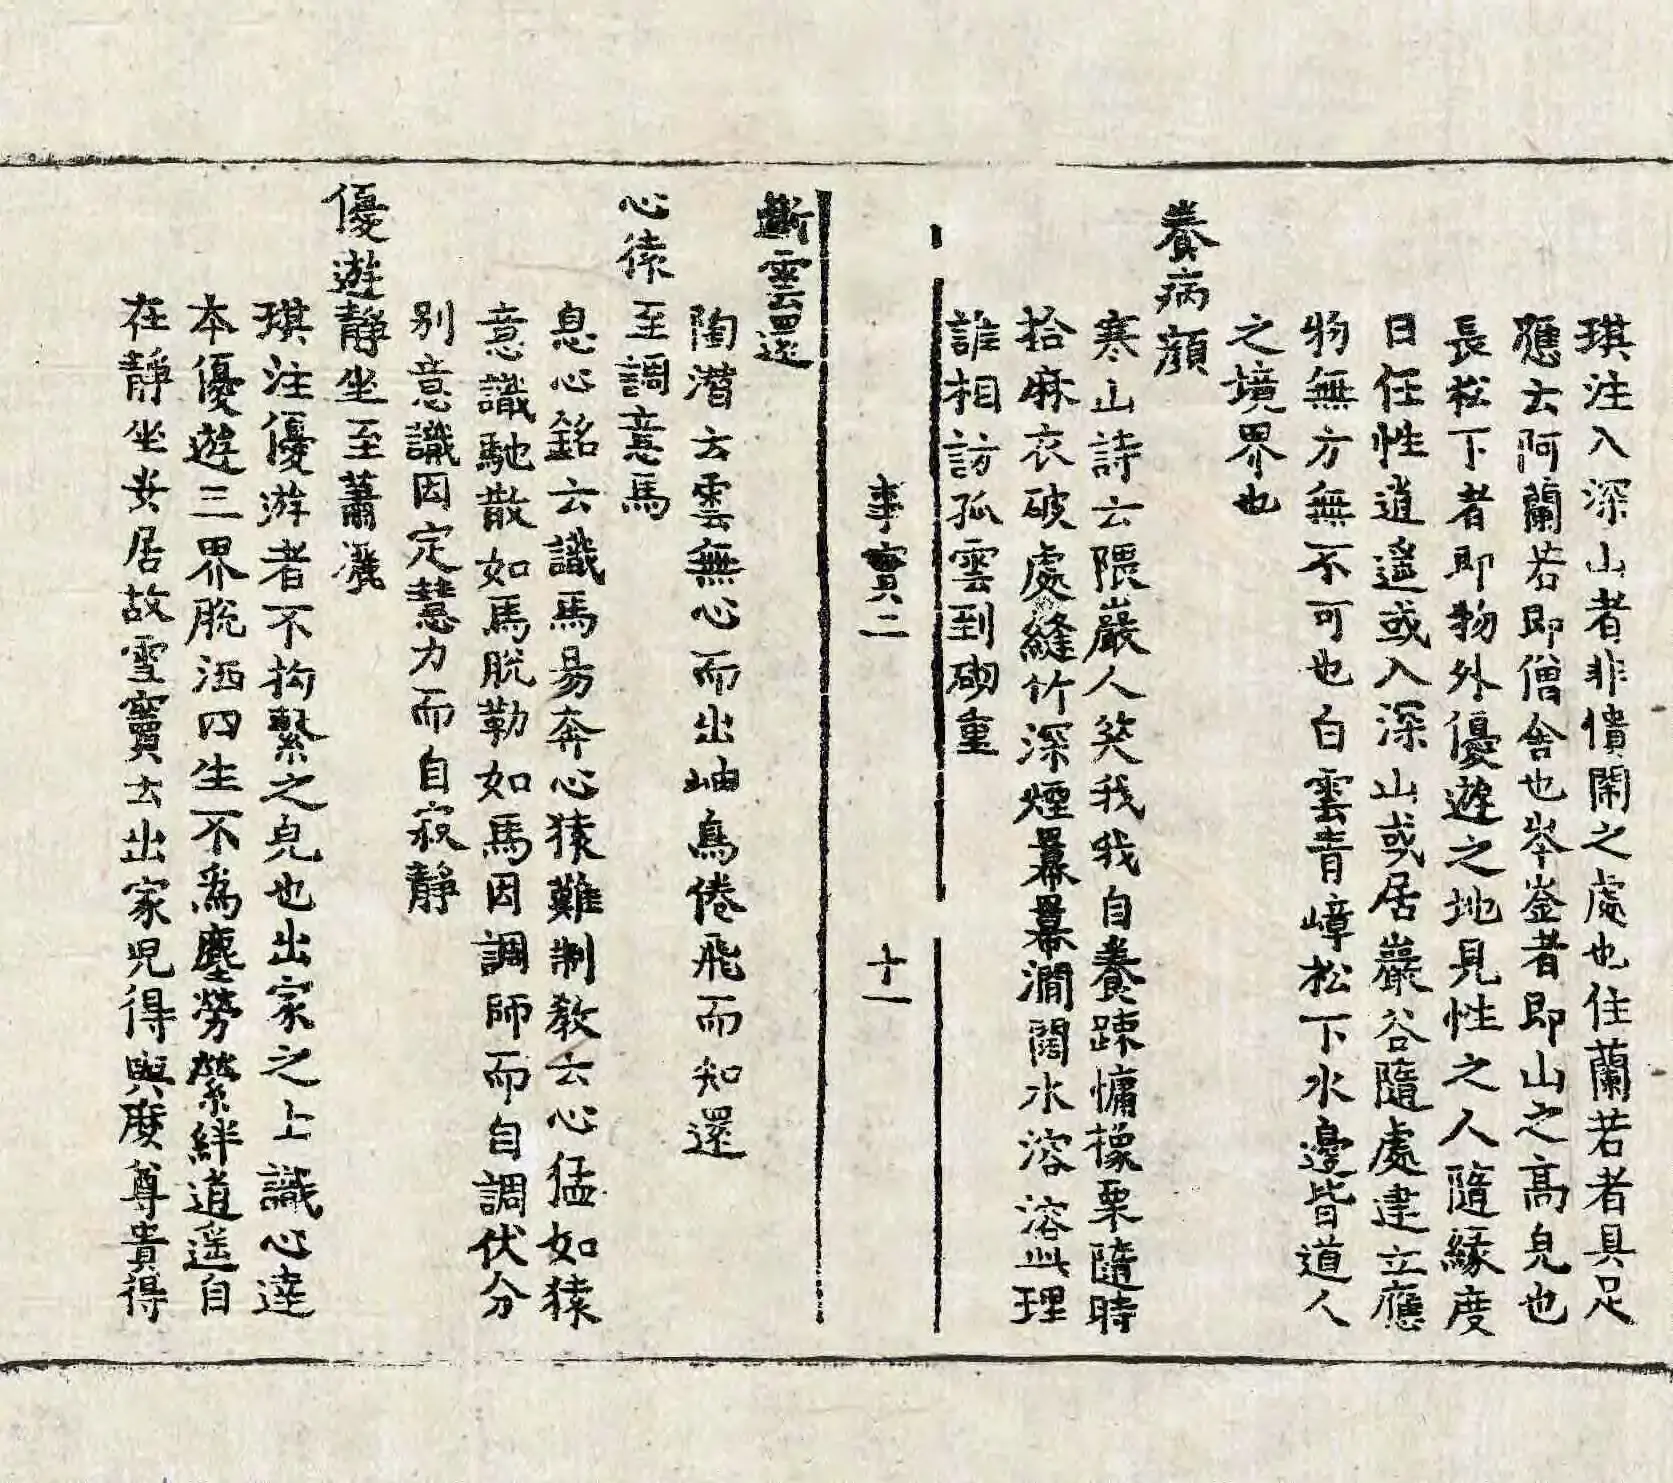 琪注入深山者非憒閙之處也住蘭若者具足
應云阿蘭若即僧舍也岑崟者即山之高皃也
長松下者即物外優遊之地見性之人隨緣度
日任性逍遥或入深山或居巖谷隨處建立應
物無方無不可也白雲青嶂松下水邊皆道人
之境界也
養病顏
寒山詩云隈巖人笑我我自養踈慵橡栗隨時
拾麻衣破處縫竹深煙羃羃澗闊水溶溶此理
誰相訪孤雲到砌重
事實二
十一
斷雲還
陶潛云雲無心而出岫鳥倦飛而知還
心猿至調意馬
息心銘云識馬易奔心猿難制教云心猛如猿
意識馳散如馬脫勒如馬因調師而自調伏分
別意識因定慧力而自寂靜
優遊靜坐至蕭灑
琪注優遊者不拘繫之皃也出家之上識心達
本優遊三界脫洒四生不為塵勞縈絆逍遥自
在靜坐安居故雪竇云出家児得與麽尊貴得